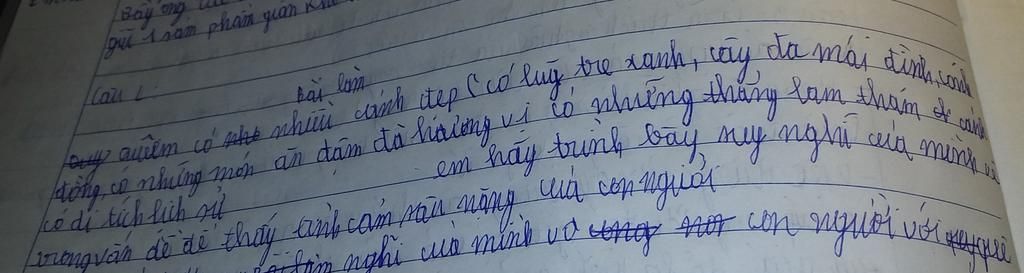 Bây ông
gửi 1 sản phẩm gián
Câu 2: Bài làm
quiêm có nhiều cảnh đẹp (có luỹ tre xanh, cây đa mái đình, cánh
đồng, có những món ăn đậm đà hương vị có những thắng lam thám cảnh
có di tích lịch sử em hãy trình bày suy nghĩ của mình về
trong vấn đề để thấy tình cảm sâu nặng của con người
nghĩ của mình về con người với quê